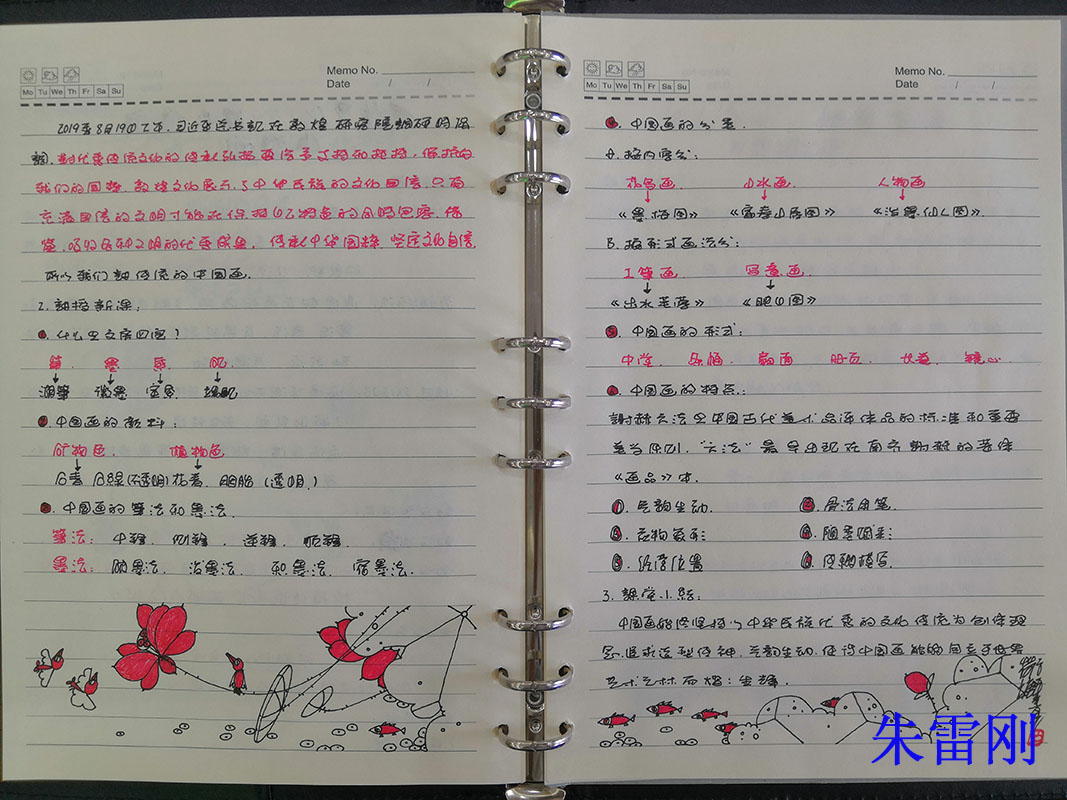 Memo No.
Mo Tu We Th Fr Sa Su
Date / /
2019年8月19日下午,习近平总书记在敦煌研究院调研时强
调,
我们的同胞,敦煌文化展示了中华民族的文化自信,只有
充满自信的文明才能在保持自己特色的同时包容、借
鉴、吸收各种文明的优秀成果。传承中华 坚定文化自信.
所以我们 传统的中国画.
2.教授新课:
①.什么是文房四宝?
笔 墨 纸 砚
湖笔 徽墨 宣纸 端砚
②中国画的颜料:
矿物色. 植物色
石青 石绿(不透明) 花青、胭脂(透明.)
③.中国画的笔法和墨法.
笔法: 中锋、侧锋、逆锋、顺锋.
墨法: 破墨法、泼墨法、积墨法、宿墨法.
Memo No.
Mo Tu We Th Fr Sa Su
Date / /
④.中国画的分类.
A.按内容分:
花鸟画. 山水画. 人物画
《墨梅图》 《富春山居图》 《泼墨仙人图》.
B.按形式画法分:
工笔画. 写意画.
《出水芙蓉》
⑤.中国画的形式:
中堂、 扇面、 册页、 长卷、 镜心.
⑥.中国画的特点:
谢赫六法是中国古代美术品评作品的标准和重要
美学原则. "六法"最早出现在南齐谢赫的著作
《画品》中.
①.气韵生动. ②.骨法用笔.
③.应物象形. ④.随类赋彩.
⑤.经营位置 ⑥.传移模写.
3.课堂小结:
中国画始终坚持以中华民族优秀的文化传统为创作理
念,追求造型传神、气韵生动.使得中国画能够
艺术之林而熠熠生辉.
朱雷刚